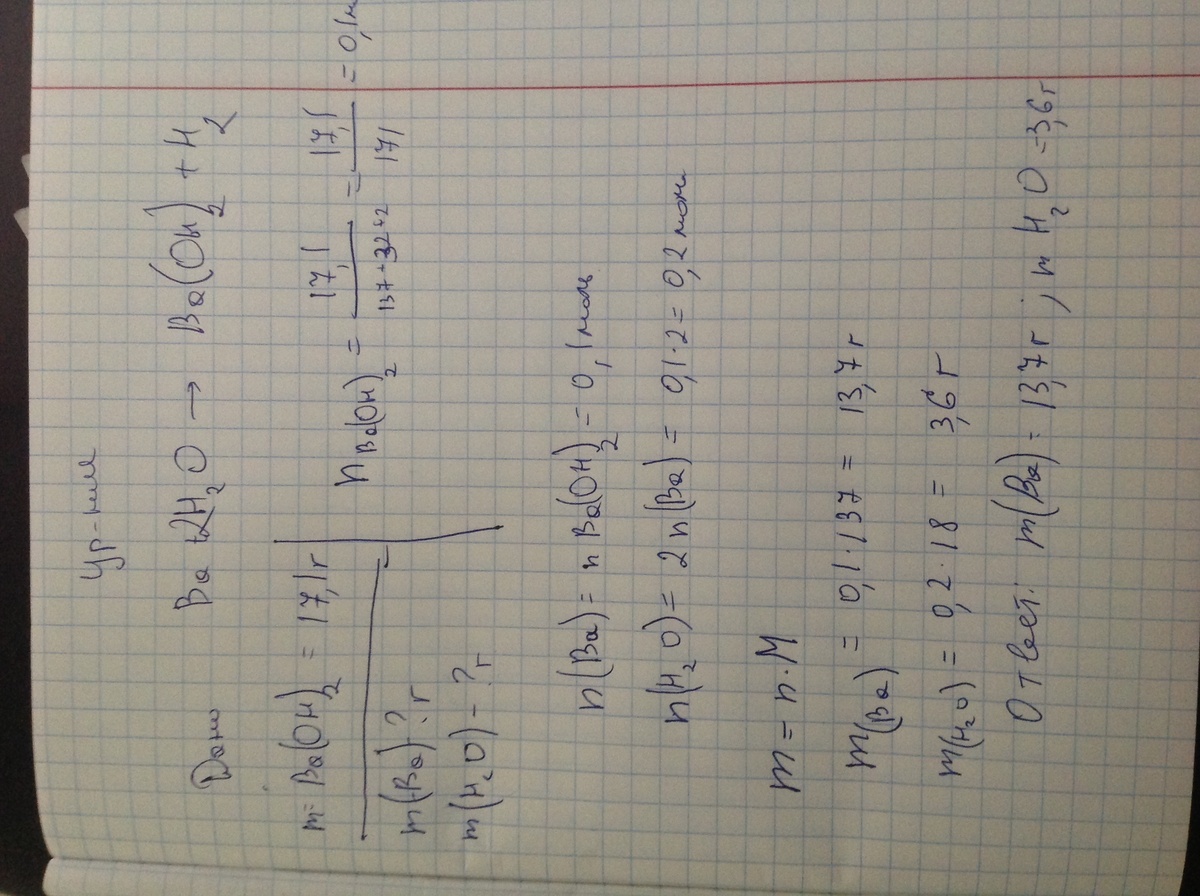 Ур-ние
Ba + 2H₂O → Ba(OH)₂ + H₂
Дано
m = Ba(OH)₂ = 17,1 г
m(Ba) ? г
m(H₂O) – ? г
n Ba(OH)₂ = 17,1 / 137+32+2 = 17,1 / 171 = 0,1 м
n(Ba) = n Ba(OH)₂ = 0,1 моль
n(H₂O) = 2 n(Ba) = 0,1 · 2 = 0,2 моль
m = n · M
m(Ba) = 0,1 · 137 = 13,7 г
m(H₂O) = 0,2 · 18 = 3,6 г
Ответ: m(Ba) = 13,7 г ; m H₂O – 3,6 г